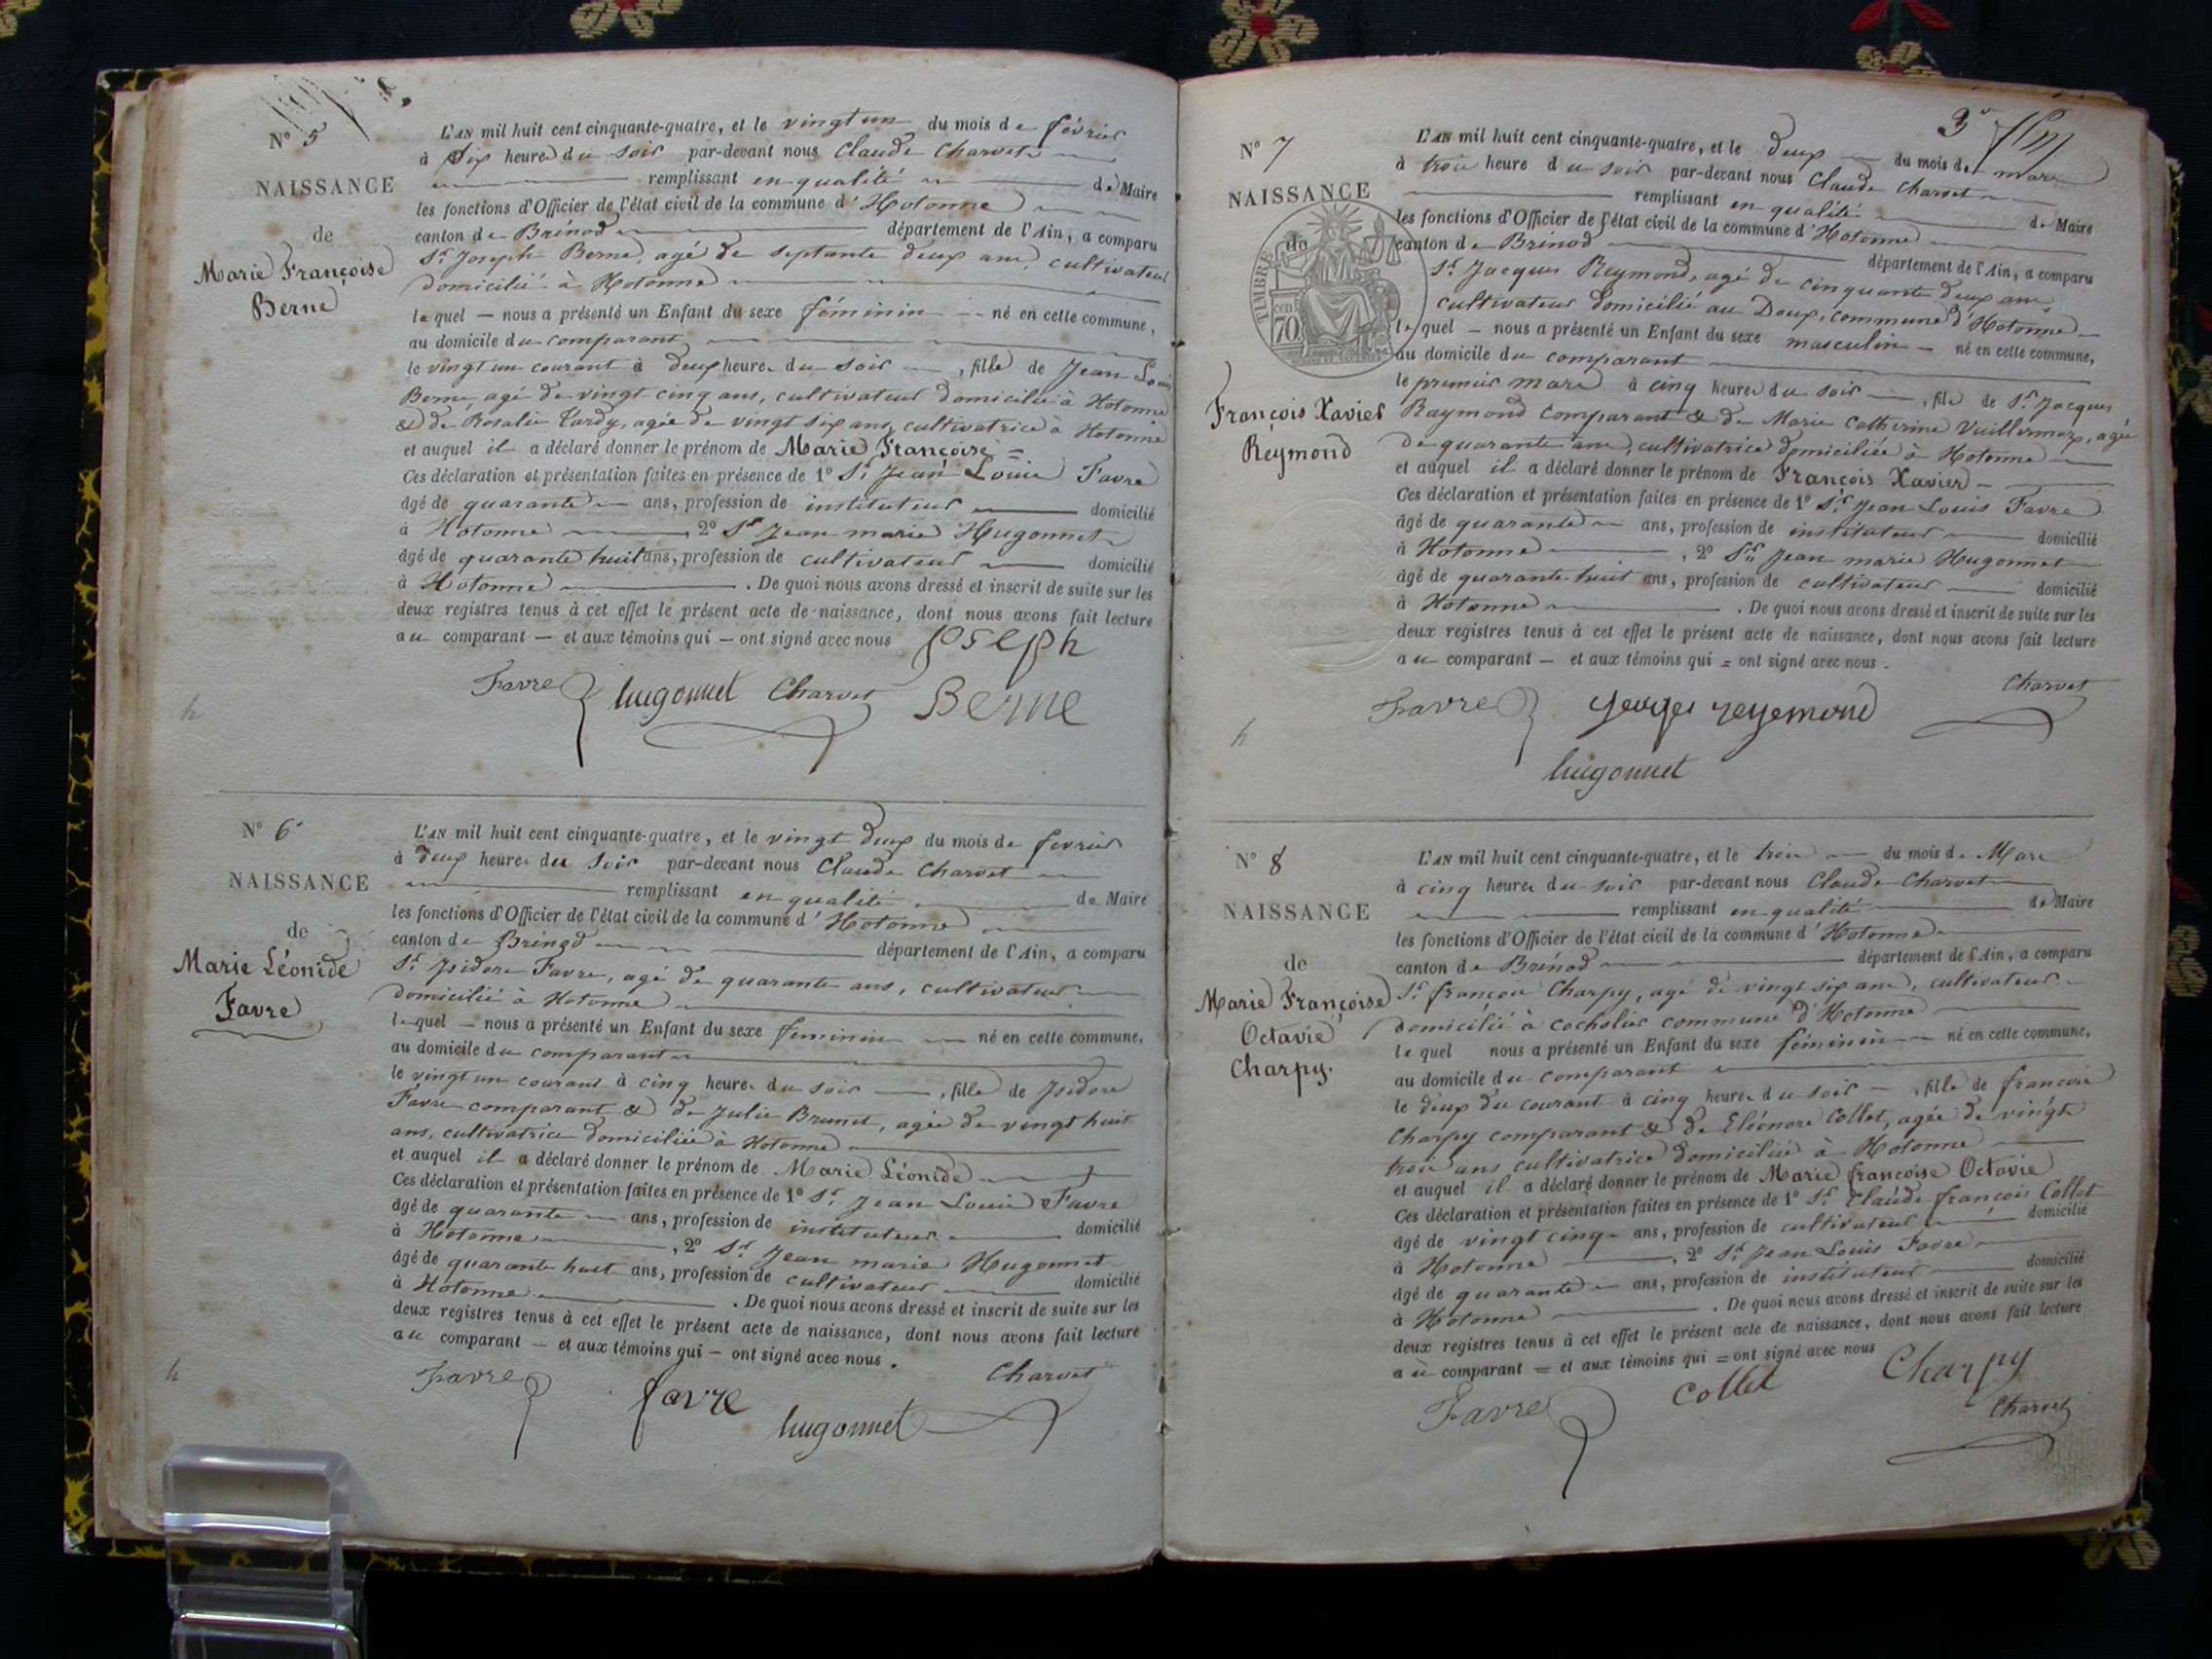 N° 5
NAISSANCE
de
Marie Françoise
Berne
L'AN mil huit cent cinquante-quatre, et le vingt un du mois de février
à Six heures du soir par-devant nous Claude Charvet
remplissant en qualité de Maire
les fonctions d'Officier de l'état civil de la commune d'Hotonne
canton de Brénod département de l'Ain, a comparu
Sr Joseph Berne, agé de septante deux ans, cultivateur
domicilié à Hotonne
lequel — nous a présenté un Enfant du sexe féminin — né en cette commune,
au domicile du comparant
le vingt un courant à deux heures du soir —, fille de Jean Louis
Berne, agé de vingt cinq ans, cultivateur domicilié à Hotonne
& de Rosalie Tardy, agée de vingt six ans, cultivatrice à Hotonne
et auquel il a déclaré donner le prénom de Marie Françoise =
Ces déclaration et présentation faites en présence de 1° Sr Jean Louis Favre
âgé de quarante ans, profession de instituteur domicilié
à Hotonne, 2° Sr Jean marie Hugonnet
âgé de quarante huit ans, profession de cultivateur domicilié
à Hotonne. De quoi nous avons dressé et inscrit de suite sur les
deux registres tenus à cet effet le présent acte de naissance, dont nous avons fait lecture
au comparant — et aux témoins qui — ont signé avec nous Joseph
Favre hugonnet Charvet Berne
N° 6
NAISSANCE
de
Marie Léonide
Favre
L'AN mil huit cent cinquante-quatre, et le vingt deux du mois de fevrier
à deux heures du soir par-devant nous Claude Charvet
remplissant en qualité de Maire
les fonctions d'Officier de l'état civil de la commune d'Hotonne
canton de Brénod département de l'Ain, a comparu
Sr Isidore Favre, agé de quarante ans, cultivateur
domicilié à Hotonne
lequel — nous a présenté un Enfant du sexe feminin — né en cette commune,
au domicile du comparant
le vingt un courant à cinq heures du soir —, fille de Isidore
Favre comparant & de Julie Brunet, agée de vingt huit
ans, cultivatrice domiciliée à Hotonne
et auquel il a déclaré donner le prénom de Marie Léonide
Ces déclaration et présentation faites en présence de 1° Sr Jean Louis Favre
âgé de quarante ans, profession de instituteur domicilié
à Hotonne, 2° Sr Jean marie Hugonnet
âgé de quarante huit ans, profession de cultivateur domicilié
à Hotonne. De quoi nous avons dressé et inscrit de suite sur les
deux registres tenus à cet effet le présent acte de naissance, dont nous avons fait lecture
au comparant — et aux témoins qui — ont signé avec nous.
Favre favre hugonnet Charvet
3
N° 7
NAISSANCE
de
TIMBRE
70
François Xavier
Reymond
L'AN mil huit cent cinquante-quatre, et le deux du mois de mars
à trois heure du soir par-devant nous Claude Charvet
remplissant en qualité de Maire
les fonctions d'Officier de l'état civil de la commune d'Hotonne
canton de Brénod département de l'Ain, a comparu
Sr Jacques Reymond, agé de cinquante deux ans
cultivateur domicilié au Doux, commune d'Hotonne
lequel — nous a présenté un Enfant du sexe masculin — né en cette commune,
au domicile du comparant
le premier mars à cinq heures du soir —, fils de Sr Jacques
Raymond comparant & de Marie Catherine Vuillermoz, agée
de quarante ans, cultivatrice domiciliée à Hotonne
et auquel il a déclaré donner le prénom de François Xavier
Ces déclaration et présentation faites en présence de 1° Sr Jean Louis Favre
âgé de quarante ans, profession de instituteur domicilié
à Hotonne, 2° Sr Jean marie Hugonnet
âgé de quarante-huit ans, profession de cultivateur domicilié
à Hotonne. De quoi nous avons dressé et inscrit de suite sur les
deux registres tenus à cet effet le présent acte de naissance, dont nous avons fait lecture
au comparant — et aux témoins qui = ont signé avec nous.
Charvet
Favre georges reyemond
hugonnet
N° 8
NAISSANCE
de
Marie Françoise
Octavie
Charpy.
L'AN mil huit cent cinquante-quatre, et le trois du mois de Mars
à cinq heures du soir par-devant nous Claude Charvet
remplissant en qualité de Maire
les fonctions d'Officier de l'état civil de la commune d'Hotonne
canton de Brénod département de l'Ain, a comparu
Sr françois Charpy, agé de vingt six ans, cultivateur
domicilié à cocholier commune d'Hotonne
lequel nous a présenté un Enfant du sexe féminin — né en cette commune,
au domicile du comparant
le deux du courant à cinq heures du soir —, fille de francois
Charpy comparant & de Eléonore Collet, agée de vingt
trois ans cultivatrice domiciliée à Hotonne
et auquel il a déclaré donner le prénom de Marie françoise Octavie
Ces déclaration et présentation faites en présence de 1° Sr Claude françois Collet
âgé de vingt cinq ans, profession de cultivateur domicilié
à Hotonne, 2° Sr Jean Louis Favre
âgé de quarante ans, profession de instituteur domicilié
à Hotonne. De quoi nous avons dressé et inscrit de suite sur les
deux registres tenus à cet effet le présent acte de naissance, dont nous avons fait lecture
au comparant = et aux témoins qui = ont signé avec nous
Favre Collet Charpy
Charvet